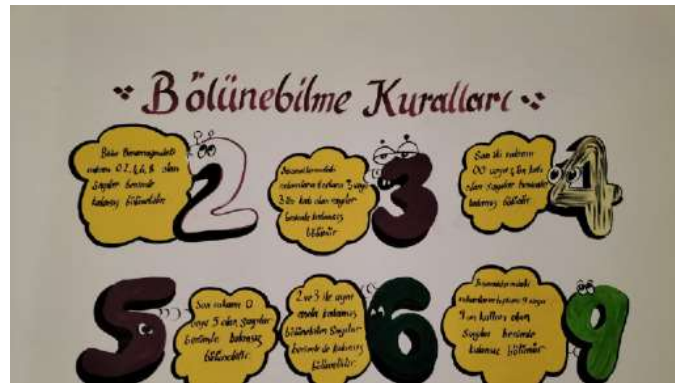 Bölünebilme Kuralları
2
Birler Basamağındaki
rakamı 0,2,4,6,8 olan
sayılar benimle
kalansız bölünebilir.
3
rakamların toplamı 3 veya
3 ün katı olan sayılar
benimle kalansız
bölünür.
4
Son iki rakamı
00 veya 4 ün katı
olan sayılar benimle
kalansız
5
Son rakamı 0
veya 5 olan sayılar
benimle kalansız
bölünebilir.
6
2 ve 3 ile aynı
anda kalansız
bölünebilen sayılar
benimle de kalansız
bölünebilir.
9
rakamların toplamı 9 veya
9 un katları olan
sayılar benimle
kalansız bölünür.